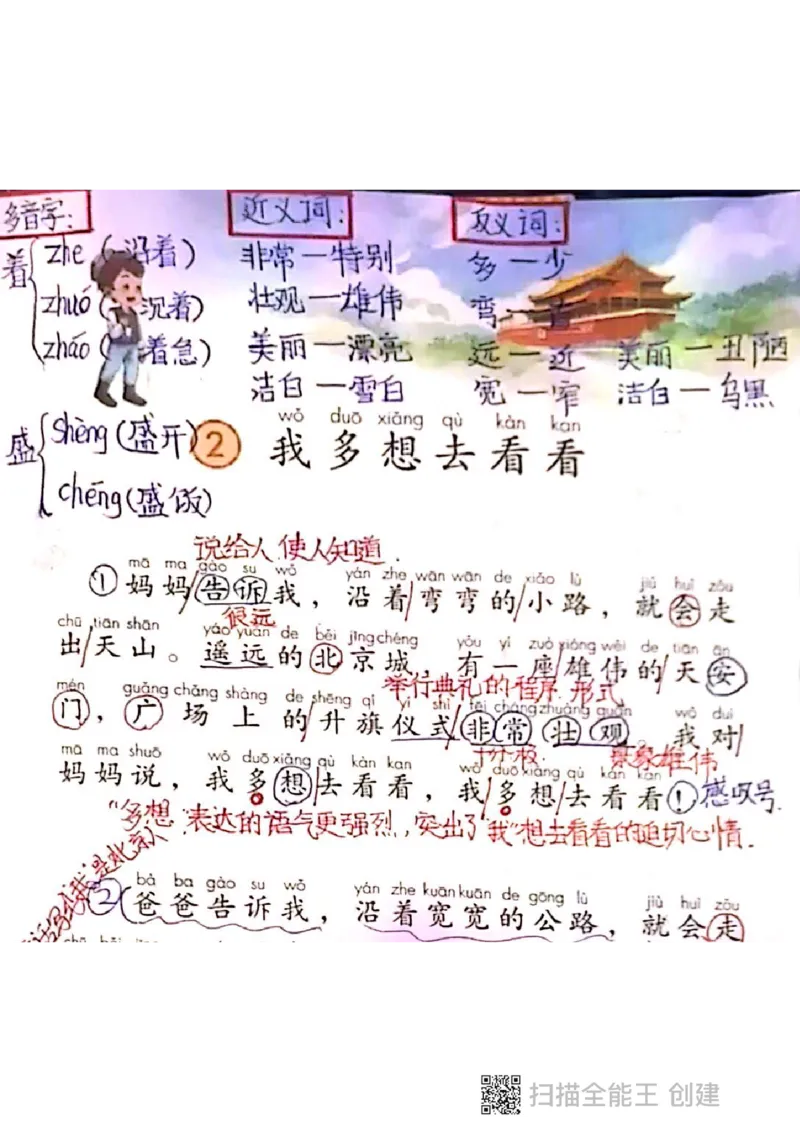 多音字：
着
zhe（沿着）
zhuó（沉着）
zháo（着急）
盛
shèng（盛开）
chéng（盛饭）
近义词：
非常一特别
壮观一雄伟
美丽一漂亮
洁白一雪白
反义词：
多一少
弯一直
远一近 美丽一丑陋
宽一窄 洁白一乌黑
wǒ duō xiǎng qù kàn kan
2 我多想去看看
说给人，使人知道．
mā ma gào su wǒ yán zhe wān wān de xiǎo lù jiù huì zǒu
①妈妈/告诉我，沿着/弯弯的/小路，就会走
很远
chū tiān shān yáo yuǎn de běi jīng chéng yǒu yí zuò xióng wěi de tiān ān
出/天山。遥远的北京城，有一座/雄伟的/天安
举行典礼的程序．形式
mén guǎng chǎng shàng de shēng qí yí shì fēi cháng zhuàng guān wǒ duì
门，广场上的/升旗仪式/非常壮观。我对/
景象雄伟
mā ma shuō wǒ duō xiǎng qù kàn kan wǒ duō xiǎng qù kàn kan
妈妈说，我多想/去看看，我/多想/去看看！感叹号．
“多想”表达的语气更强烈，突出了“我”想去看看的迫切心情．
bà ba gào su wǒ yán zhe kuān kuān de gōng lù jiù huì zǒu
②爸爸告诉我，沿着宽宽的公路，就会走
我是北京人
扫描全能王 创建